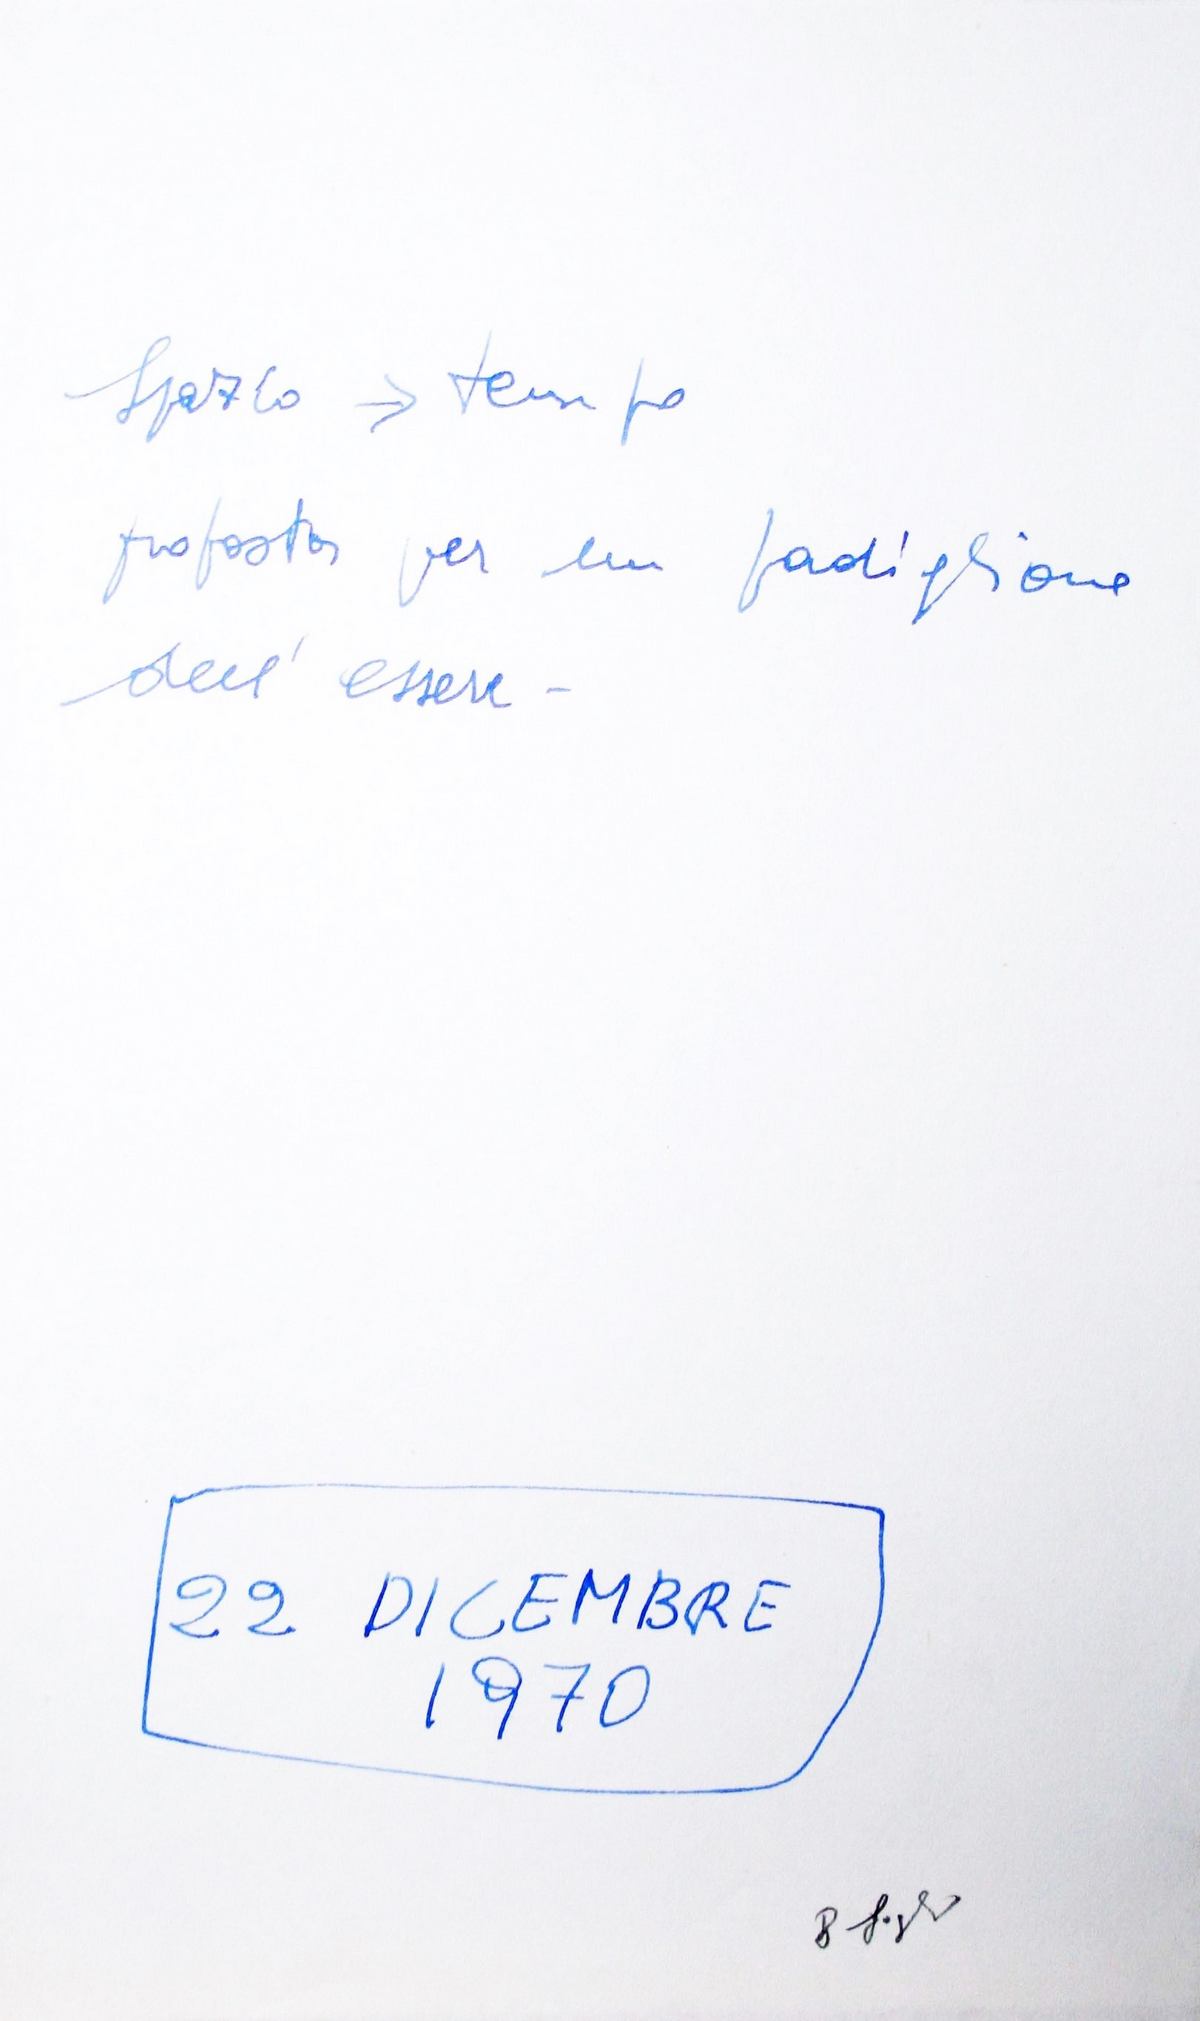 Spazio → tempo
proposta per un padiglione
dell'essere -
22 DICEMBRE
1970